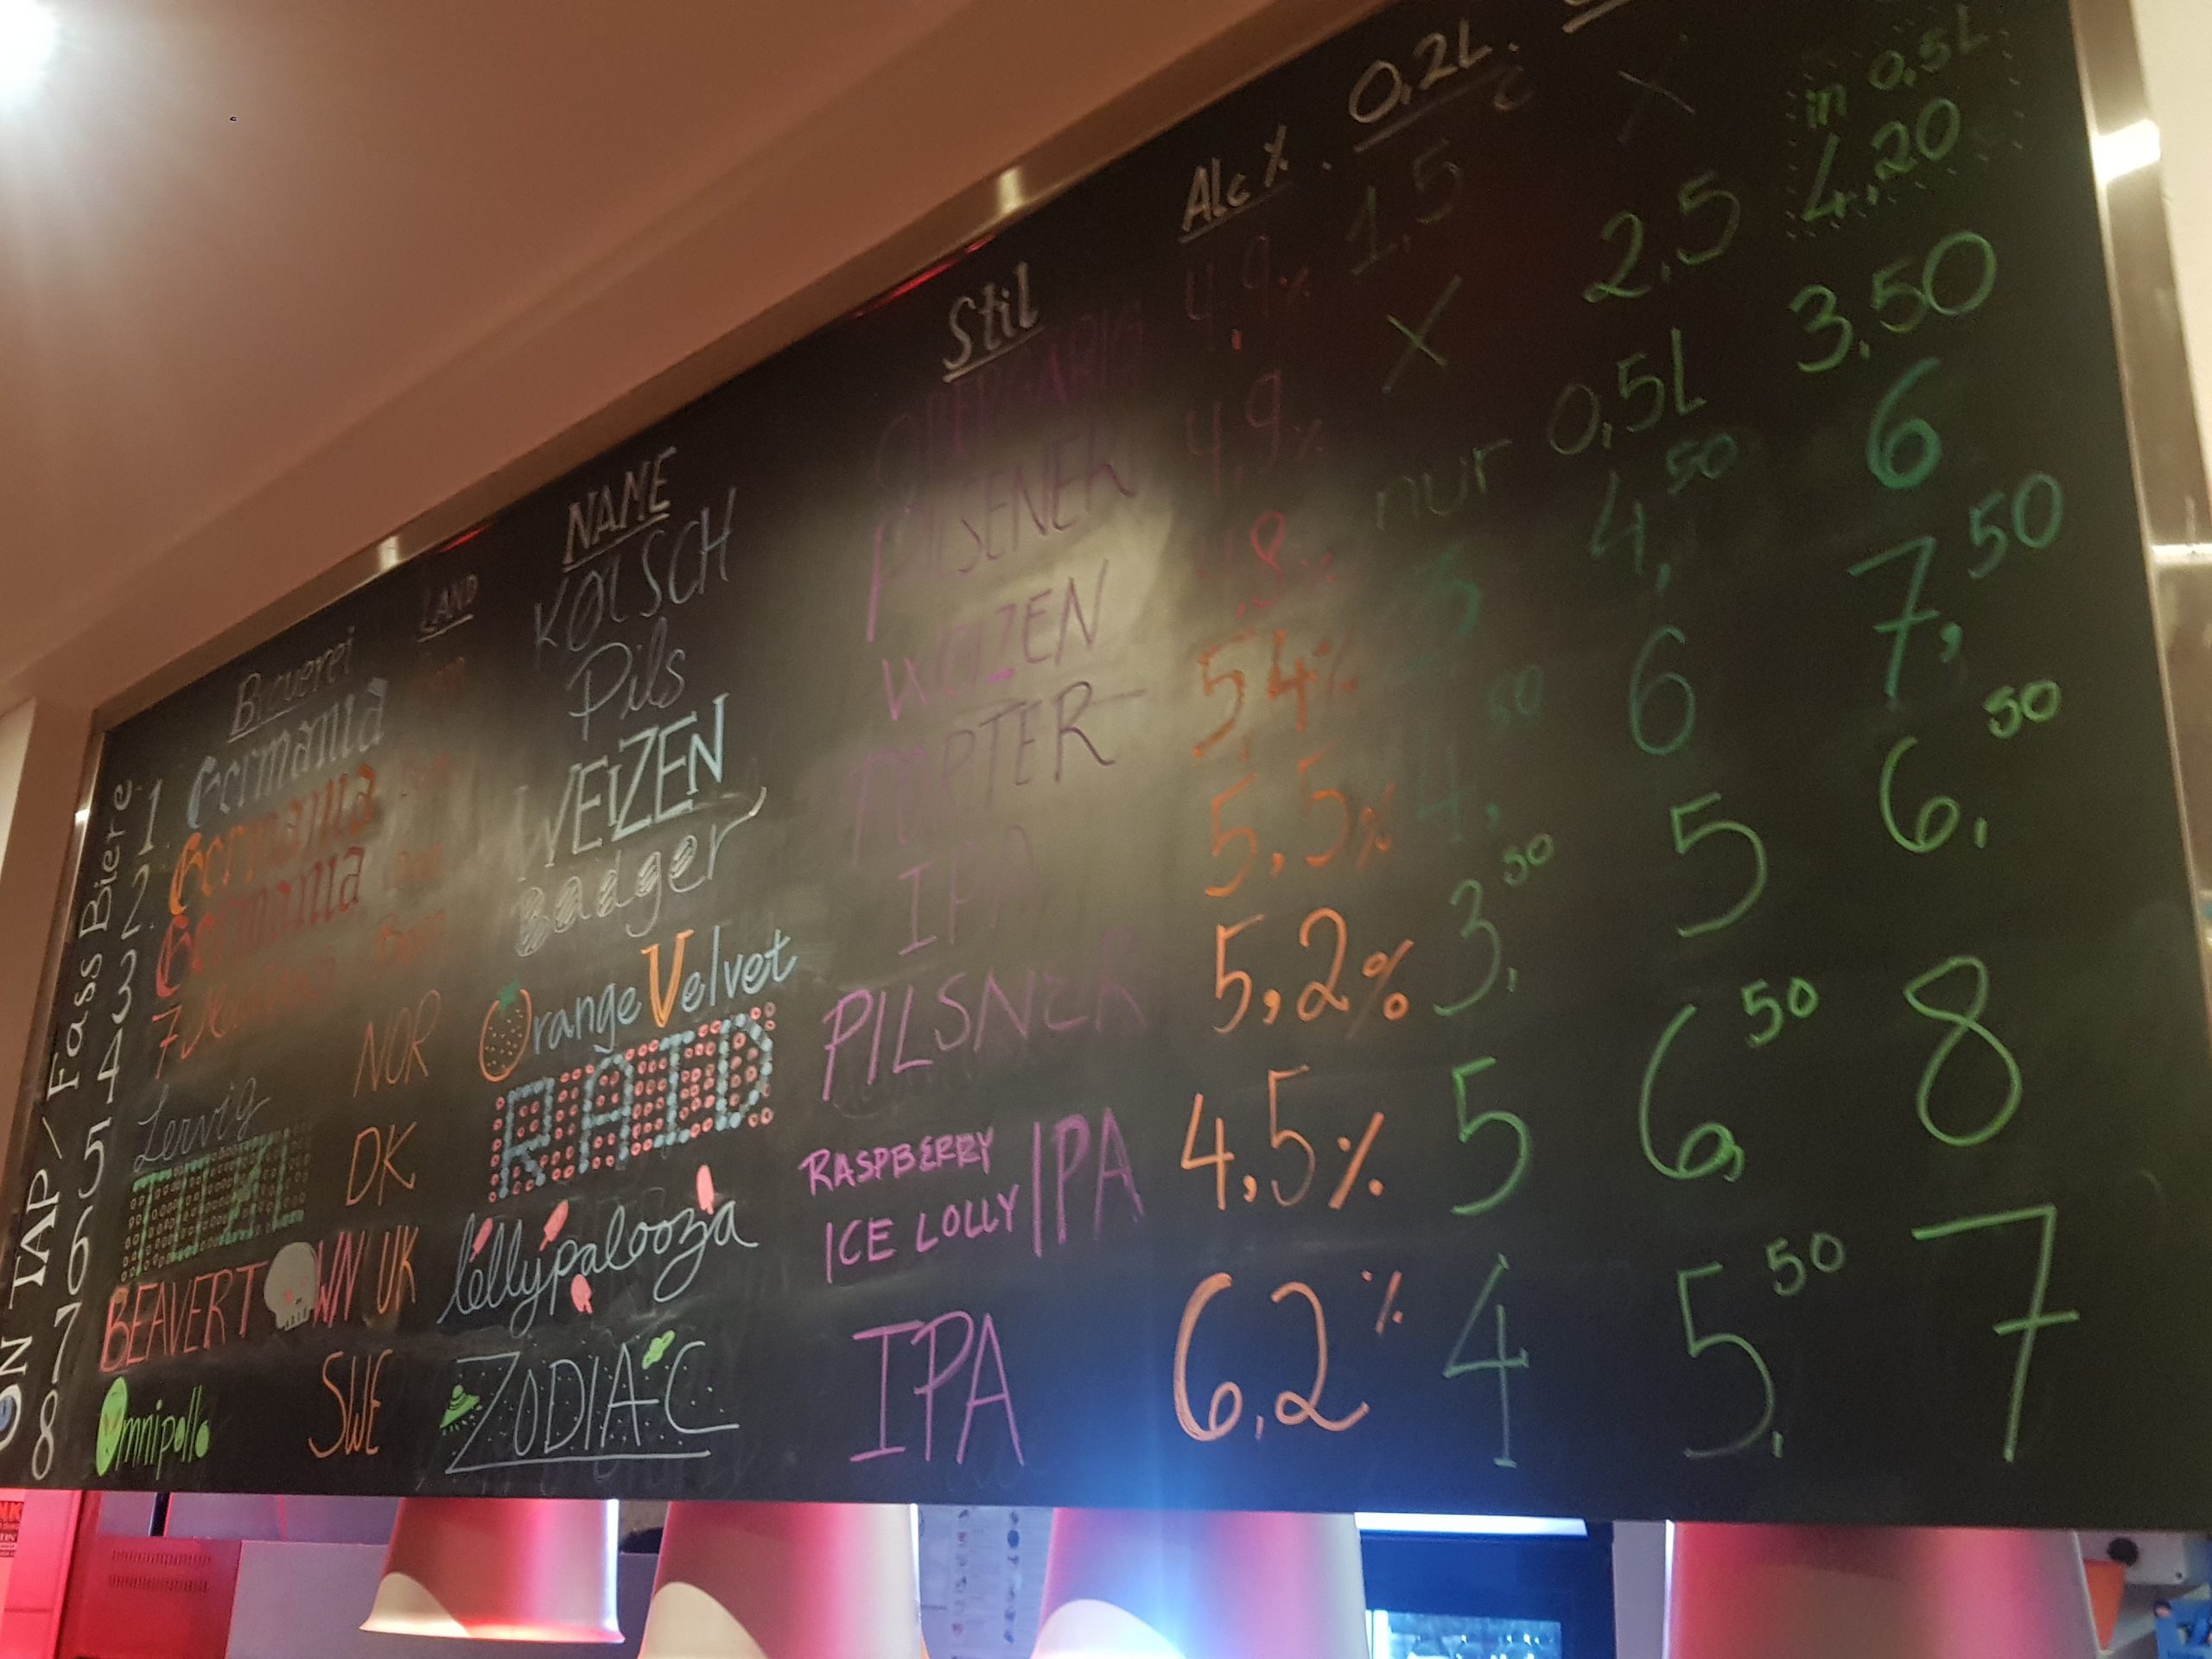 ON TAP / Fass Biere
Brauerei LAND NAME Stil Alc % 0,2L
1 Germania KÖLSCH OBERGÄRIG 4,9% 1,5 X in 0,5L 4,20
2 Germania Pils PILSENER 4,9% X 2,5 3,50
3 Germania WEIZEN WEIZEN nur 0,5L
4 Badger PORTER 5,4% 3 4,50 6
5 Lervig NOR Orange Velvet IPA 5,5% 4,50 6 7,50
6 TØL DK RAID PILSNER 5,2% 3,50 5 6,50
7 BEAVERTOWN UK lollypalooza RASPBERRY ICE LOLLY IPA 4,5% 5 6,50 8
8 Omnipollo SWE ZODIAC IPA 6,2% 4 5,50 7